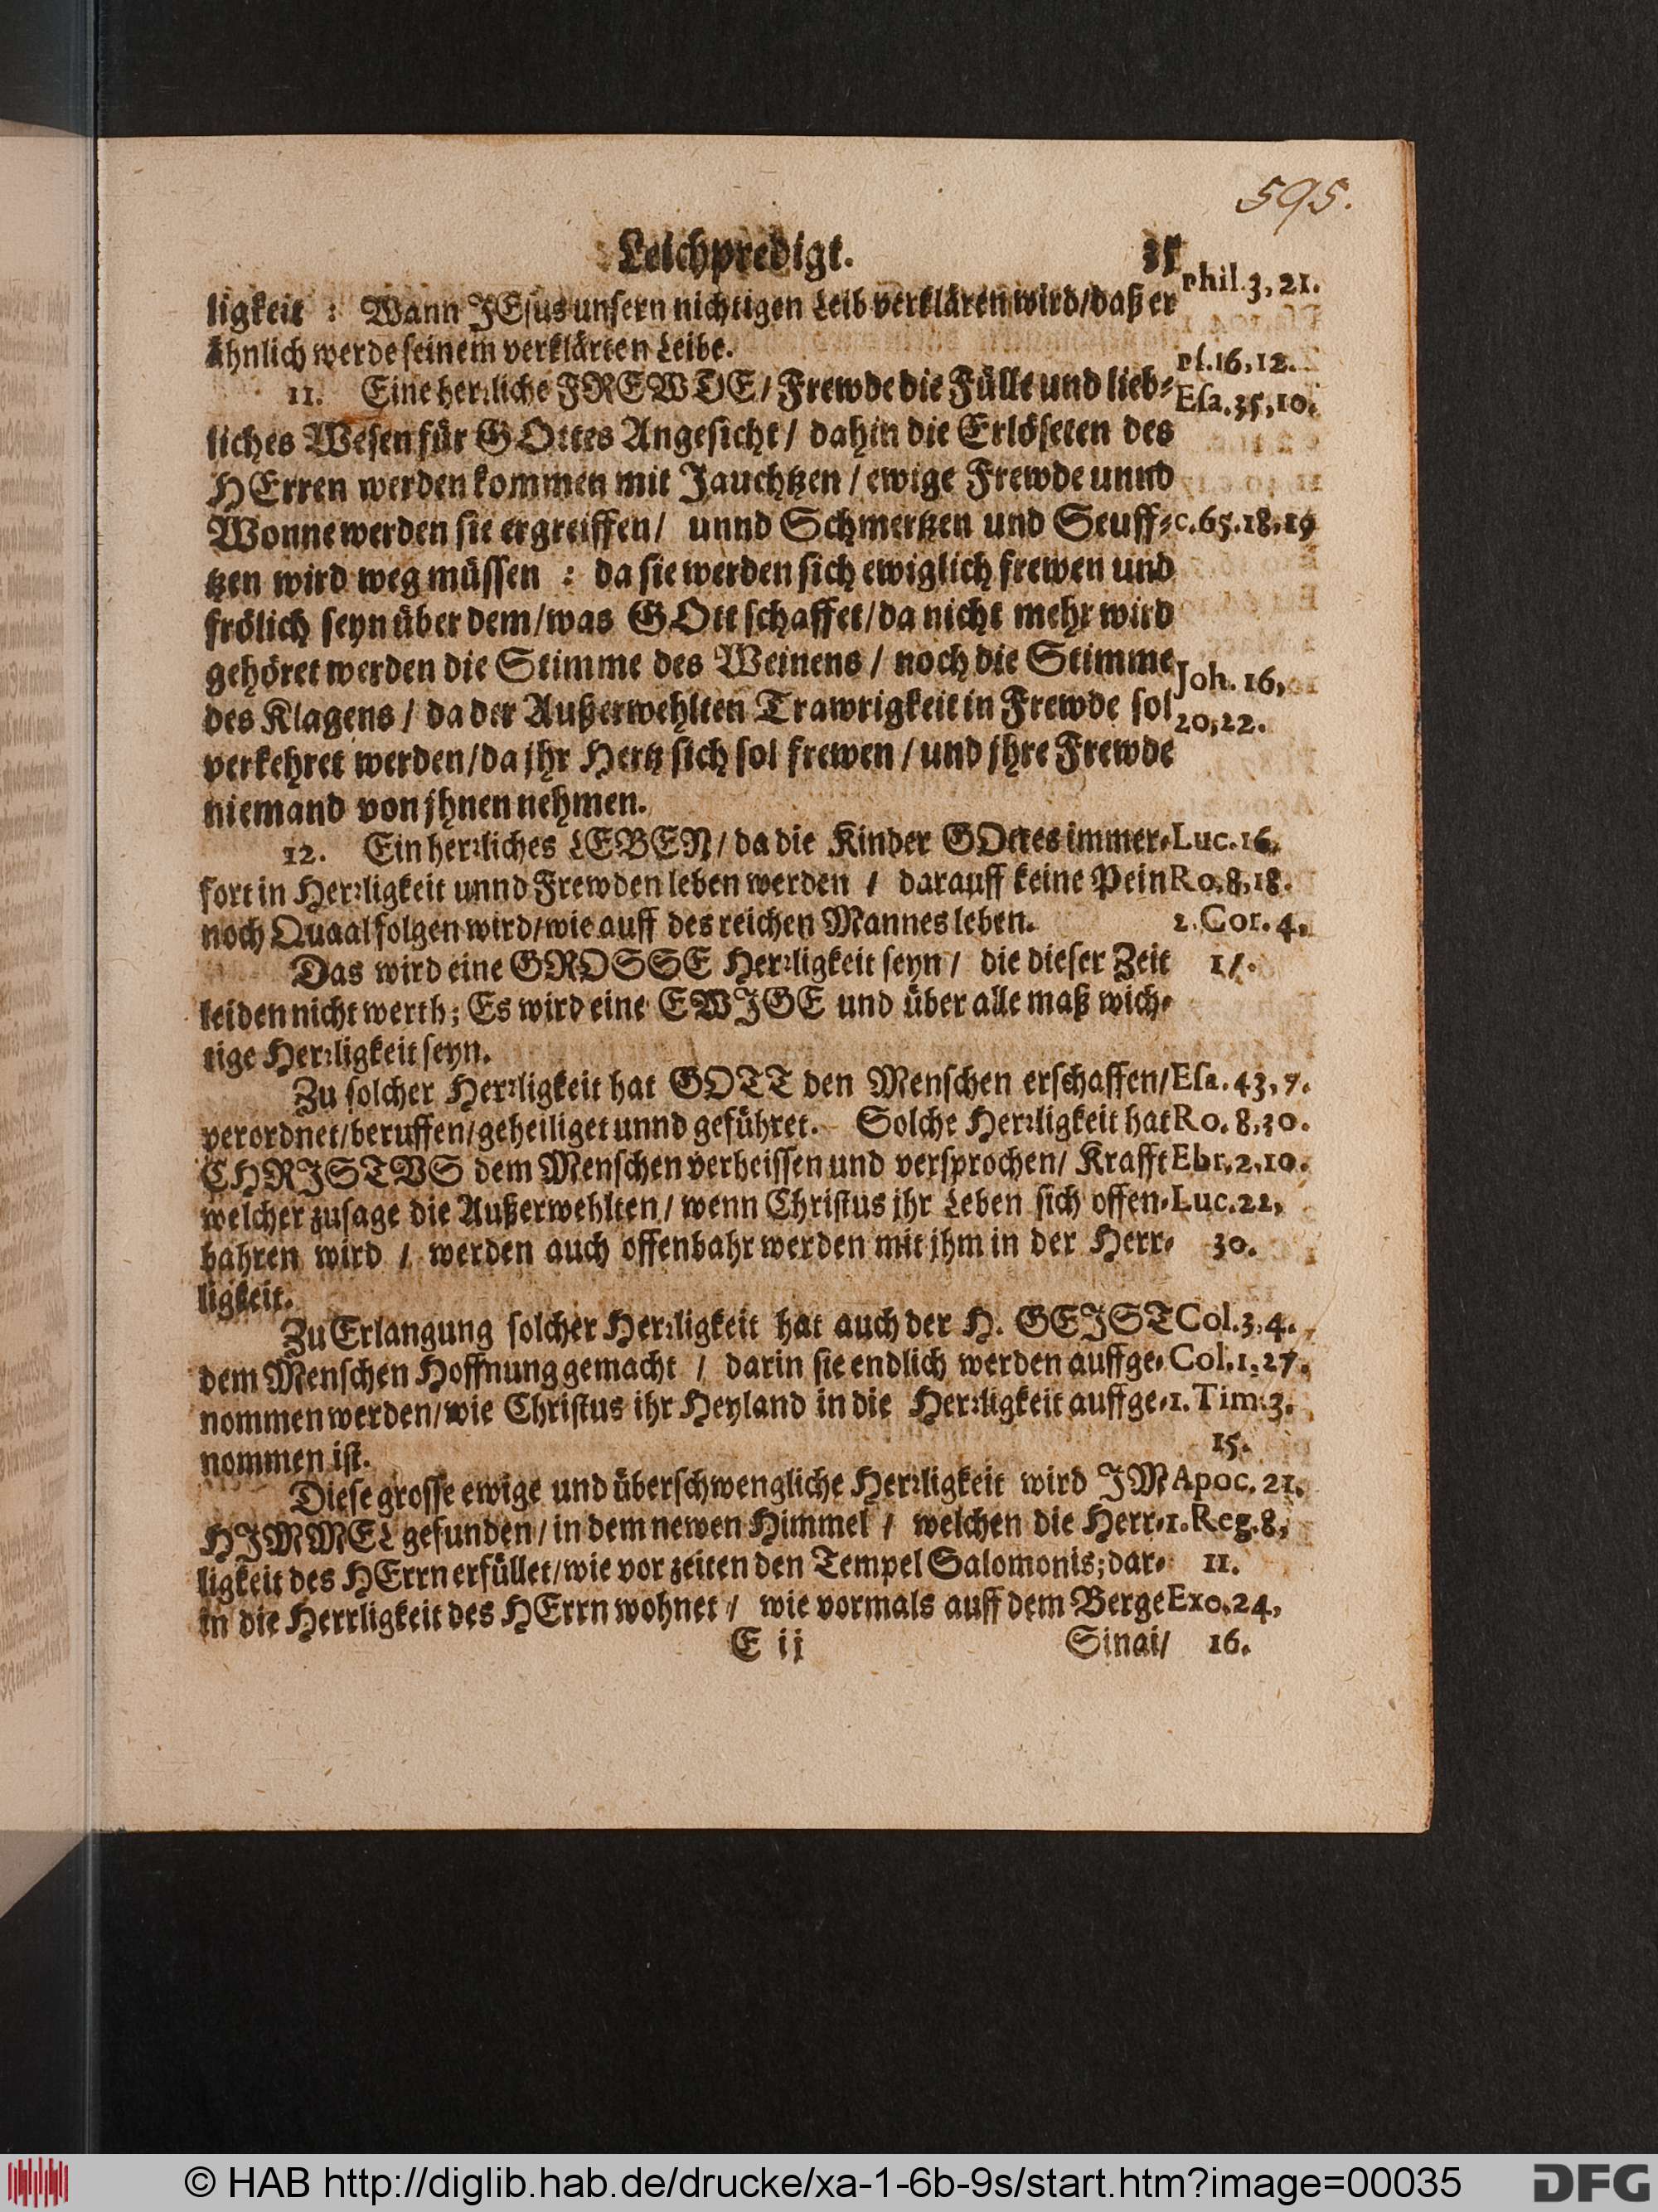 595.
Leichpredigt. 35
ligkeit : Wann JEsus unsern nichtigen Leib verklären wird/daß er Phil. 3, 21.
ähnlich werde seinem verklärten Leibe.
Ps. 16, 12.
11. Eine herꝛliche FREWDE / Frewde die Fülle und lieb⸗
Esa. 35, 10.
liches Wesen für GOttes Angesicht / dahin die Erlöseten des
HErren werden kommen mit Jauchtzen / ewige Frewde unnd
Wonne werden sie ergreiffen/ unnd Schmertzen und Seuff⸗ c. 65. 18, 19
tzen wird weg müssen : da sie werden sich ewiglich frewen und
frölich seyn über dem/was GOtt schaffet/da nicht mehr wird
gehöret werden die Stimme des Weinens / noch die Stimme Joh. 16,
des Klagens / da der Außerwehlten Trawrigkeit in Frewde sol 20, 22.
verkehret werden/da jhr Hertz sich sol frewen / und jhre Frewde
niemand von jhnen nehmen.
12. Ein herꝛliches LEBEN/ da die Kinder GOttes immer⸗ Luc. 16.
fort in Herꝛligkeit unnd Frewden leben werden / darauff keine Pein Ro. 8, 18.
noch Quaal folgen wird/wie auff des reichen Mannes leben. 2. Cor. 4,
Das wird eine GROSSE Herꝛligkeit seyn / die dieser Zeit 17.
leiden nicht werth; Es wird eine EWJGE und über alle maß wich⸗
tige Herꝛligkeit seyn.
Zu solcher Herꝛligkeit hat GOTT den Menschen erschaffen/ Esa. 43, 7.
verordnet/beruffen/geheiliget unnd geführet. Solche Herꝛligkeit hat Ro. 8, 30.
CHRJSTVS dem Menschen verheissen und versprochen/ Krafft Ebr. 2, 10.
welcher zusage die Außerwehlten / wenn Christus jhr Leben sich offen⸗ Luc. 22,
bahren wird / werden auch offenbahr werden mit jhm in der Herr⸗ 30.
ligkeit.
Zu Erlangung solcher Herꝛligkeit hat auch der H. GEJST Col. 3, 4.
dem Menschen Hoffnung gemacht / darin sie endlich werden auffge⸗ Col. 1, 27.
nommen werden/wie Christus ihr Heyland in die Herꝛligkeit auffge⸗ 1. Tim. 3.
nommen ist. 15.
Diese grosse ewige und überschwengliche Herꝛligkeit wird JM Apoc. 21.
HJMMEL gefunden / in dem newen Himmel / welchen die Herr⸗ 1. Reg. 8,
ligkeit des HErrn erfüllet/wie vor zeiten den Tempel Salomonis; dar⸗ 11.
in die Herrligkeit des HErrn wohnet / wie vormals auff dem Berge Exo. 24,
E ij Sinai/ 16.
© HAB http://diglib.hab.de/drucke/xa-1-6b-9s/start.htm?image=00035 DFG